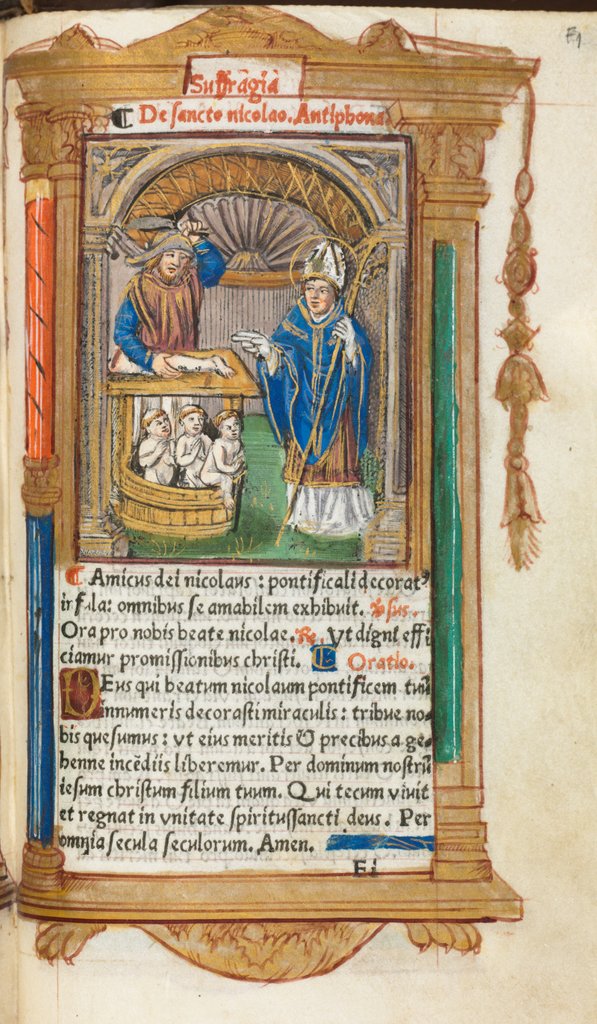 F1
Suffragia
¶ De sancto nicolao. Antiphona.
¶ Amicus dei nicolaus : pontificali decorat⁹
infula: omnibus se amabilem exhibuit. v̄sus.
Ora pro nobis beate nicolae. Re. Vt digni effi
ciamur promissionibus christi. ¶ Oratio.
DEus qui beatum nicolaum pontificem tuū
innumeris decorasti miraculis : tribue no-
bis quesumus : vt eius meritis & precibus a ge-
henne incēdiis liberemur. Per dominum nostrū
iesum christum filium tuum. Qui tecum viuit
et regnat in vnitate spiritussancti deus. Per
omnia secula seculorum. Amen.
Fi